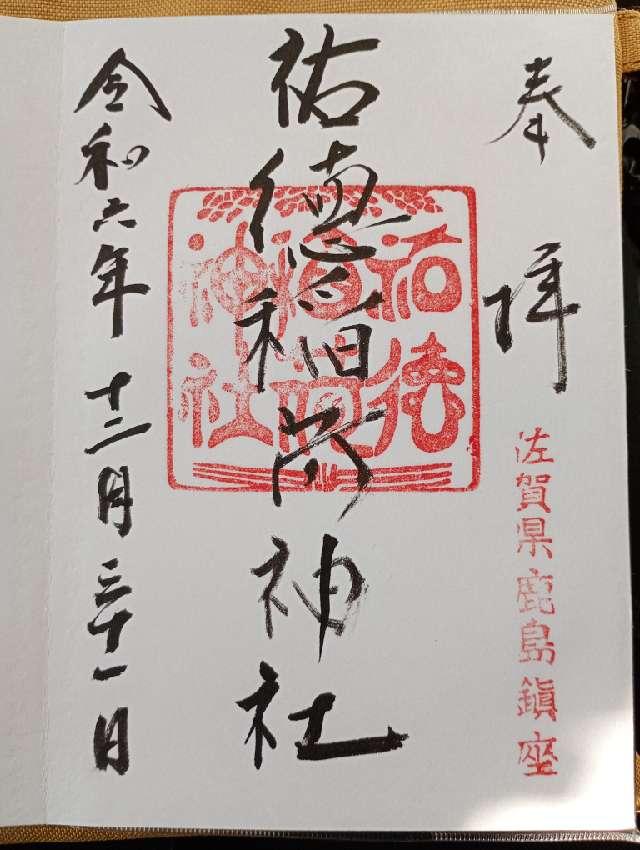 奉拝
佐賀県鹿島鎮座
祐徳稲荷神社
祐徳
稲荷
神社
令和六年十二月三十一日